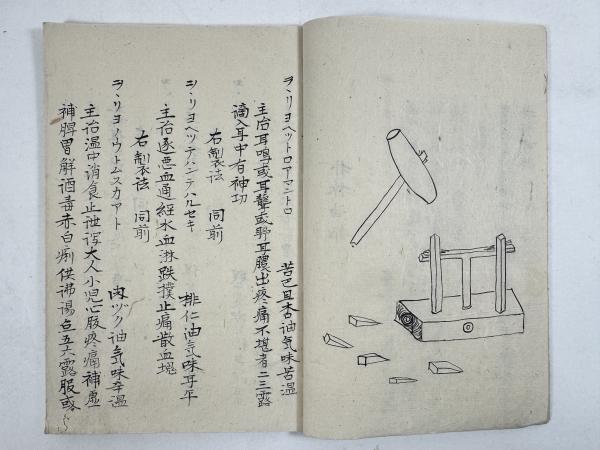 ヲヽリヨヘットロアマントロ　苦巴旦杏油気味苦温
主治耳鳴或耳聾或聤耳膿出疼痛不堪者二三露
滴入耳中有神功
右製法　同前
ヲヽリヨヘッテハンテハルセキ　桃仁油気味耳平
主治逐悪血通経水血淋跌撲止痛散血塊
右製法　同前
ヲヽリヨノウトムスカアト　肉ヅク油気味辛温
主治温中消食止泄瀉大人小児心腹疼痛補虚
補脾胃解酒毒赤白痢供沸湯点五六露服或